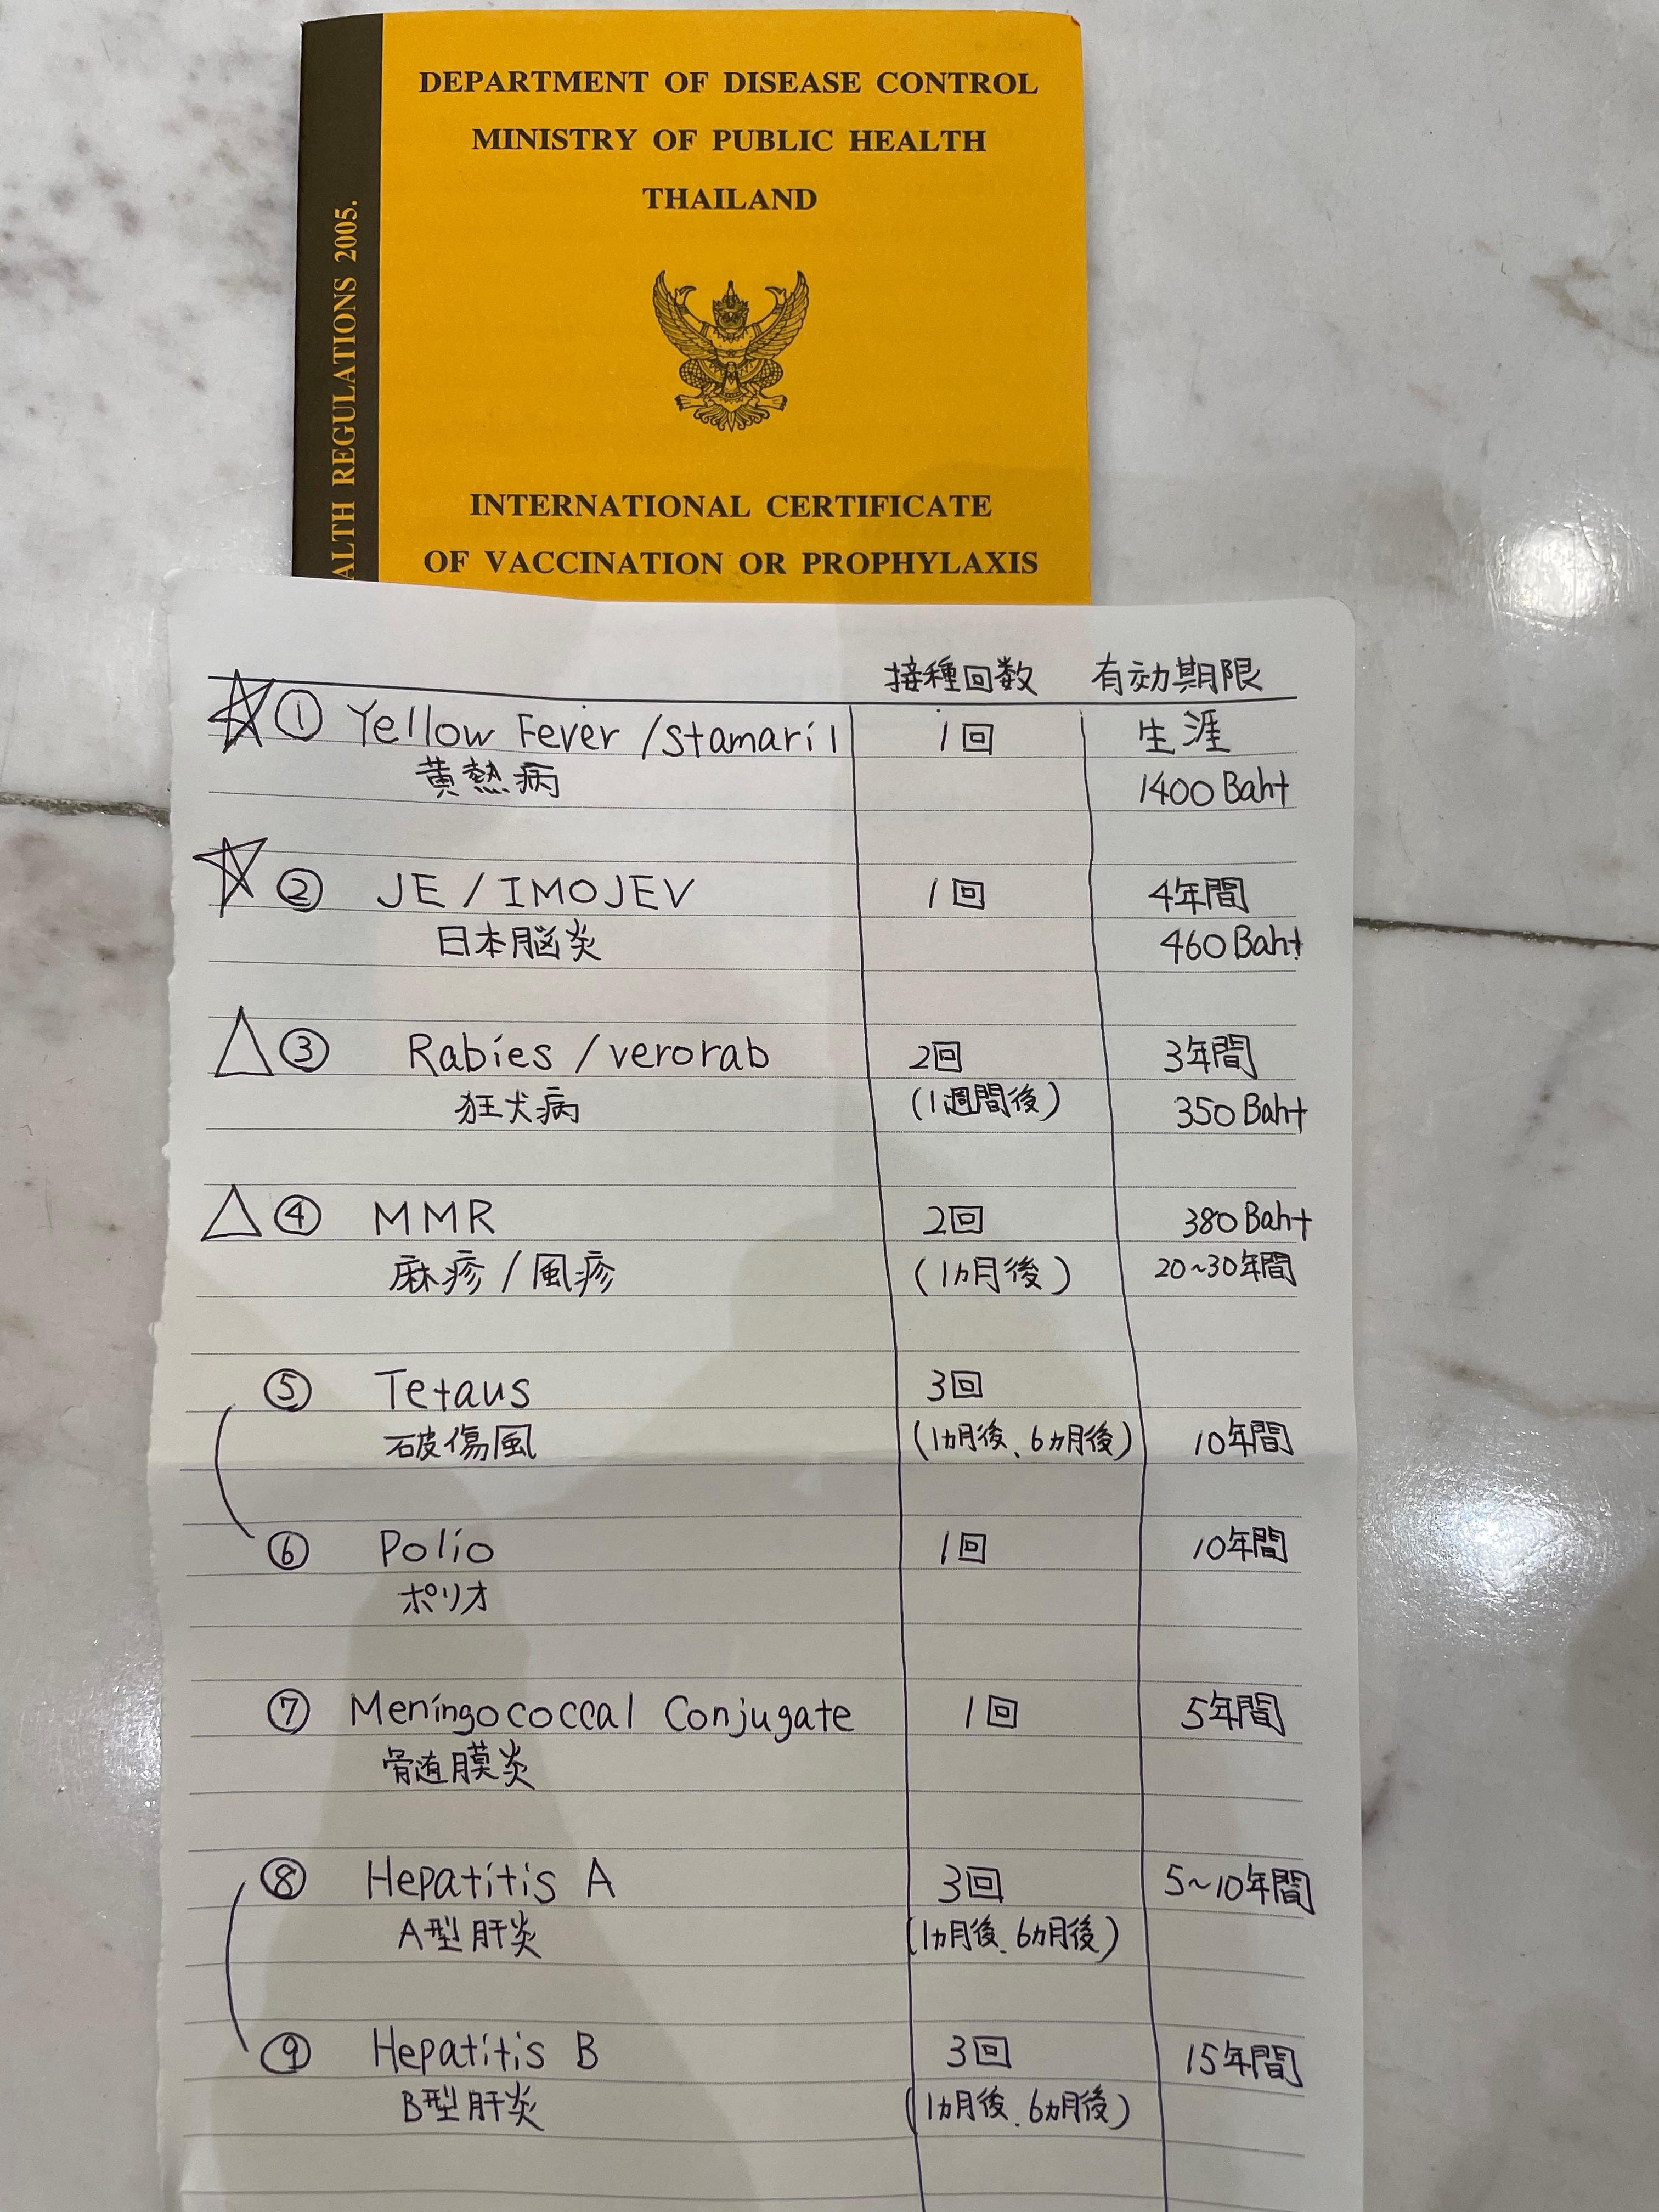 DEPARTMENT OF DISEASE CONTROL
MINISTRY OF PUBLIC HEALTH
THAILAND
ALTH REGULATIONS 2005.
INTERNATIONAL CERTIFICATE
OF VACCINATION OR PROPHYLAXIS
接種回数 有効期限
☆ ① Yellow Fever /stamaril 1回 生涯
黄熱病 1400 Baht
☆ ② JE / IMOJEV 1回 4年間
日本脳炎 460 Baht
△ ③ Rabies /verorab 2回 3年間
狂犬病 (1週間後) 350 Baht
△ ④ MMR 2回 380 Baht
麻疹 / 風疹 (1ヵ月後) 20~30年間
⑤ Tetaus 3回
破傷風 (1ヵ月後、6ヵ月後) 10年間
⑥ Polio 1回 10年間
ポリオ
⑦ Meningococcal Conjugate 1回 5年間
骨随膜炎
⑧ Hepatitis A 3回 5~10年間
A型肝炎 (1ヵ月後、6ヵ月後)
⑨ Hepatitis B 3回 15年間
B型肝炎 (1ヵ月後、6ヵ月後)